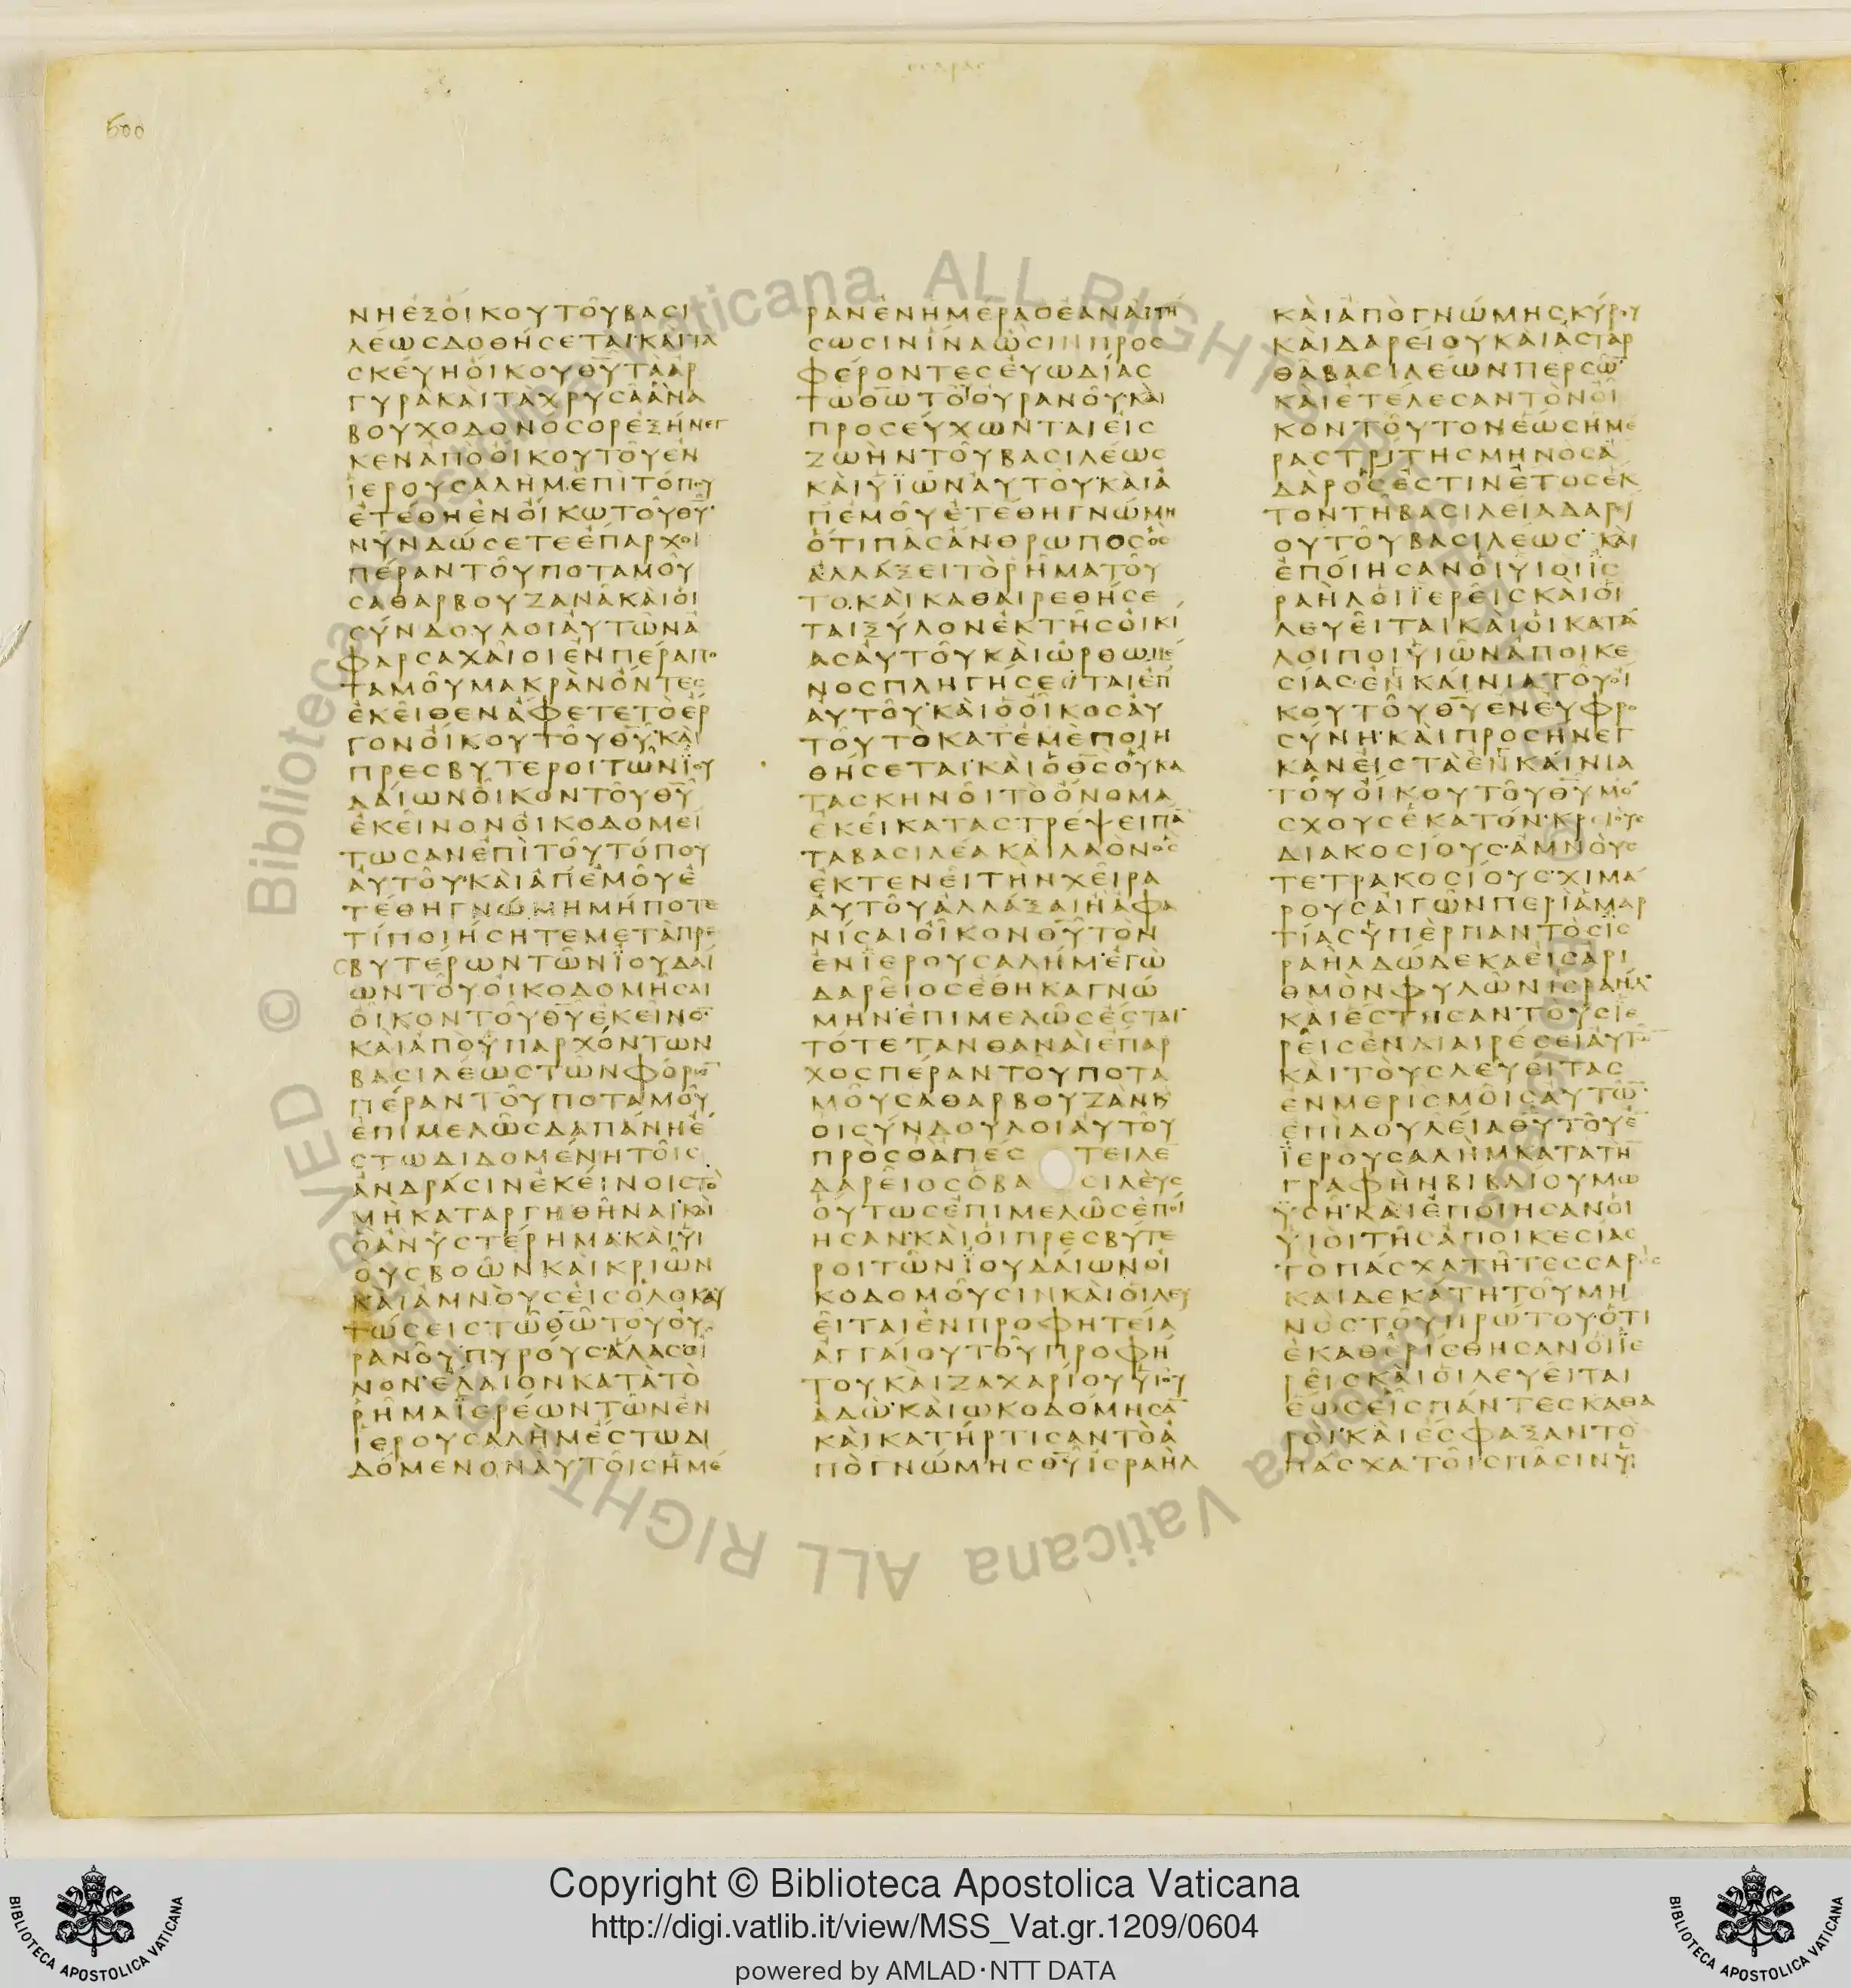 600
ΝΗΕΞΟΙΚΟΥΤΟΥΒΑϹΙ
ΛΕΩϹΔΟΘΗϹΕΤΑΙ·ΚΑΙΤΑ
ϹΚΕΥΗΟΙΚΟΥΘΥΤΑΑΡ
ΓΥΡΑΚΑΙΤΑΧΡΥϹΑΑΝΑ
ΒΟΥΧΟΔΟΝΟϹΟΡΕΞΗΝΕΓ
ΚΕΝΑΠΟΟΙΚΟΥΤΟΥΕΝ
ΪΕΡΟΥϹΑΛΗΜ·ΕΠΙΤΟΠΟΥ
ΕΤΕΘΗΕΝΟΙΚΩΤΟΥΘΥ·
ΝΥΝΔΩϹΕΤΕΕΠΑΡΧΟΙ
ΠΕΡΑΝΤΟΥΠΟΤΑΜΟΥ
ϹΑΘΑΡΒΟΥΖΑΝΑΚΑΙΟΙ
ϹΥΝΔΟΥΛΟΙΑΥΤΩΝΑ
ΦΑΡϹΑΧΑΙΟΙΕΝΠΕΡΑΠΟ
ΤΑΜΟΥΜΑΚΡΑΝΟΝΤΕϹ
ΕΚΕΙΘΕΝΑΦΕΤΕΤΟΕΡ
ΓΟΝΟΙΚΟΥΤΟΥΘΥ·ΚΑΙ
ΠΡΕϹΒΥΤΕΡΟΙΤΩΝΪΟΥ
ΔΑΙΩΝΟΙΚΟΝΤΟΥΘΥ
ΕΚΕΙΝΟΝΟΙΚΟΔΟΜΕΙ
ΤΩϹΑΝΕΠΙΤΟΥΤΟΠΟΥ
ΑΥΤΟΥ·ΚΑΙΑΠΕΜΟΥΕ
ΤΕΘΗΓΝΩΜΗΜΗΠΟΤΕ
ΤΙΠΟΙΗϹΗΤΕΜΕΤΑΠΡΕ
ϹΒΥΤΕΡΩΝΤΩΝΪΟΥΔΑΙ
ΩΝΤΟΥΟΙΚΟΔΟΜΗϹΑΙ
ΟΙΚΟΝΤΟΥΘΥΕΚΕΙΝΟ·
ΚΑΙΑΠΟΥΠΑΡΧΟΝΤΩΝ
ΒΑϹΙΛΕΩϹΤΩΝΦΟΡΩ
ΠΕΡΑΝΤΟΥΠΟΤΑΜΟΥ
ΕΠΙΜΕΛΩϹΔΑΠΑΝΗΕ
ϹΤΩΔΙΔΟΜΕΝΗΤΟΙϹ
ΑΝΔΡΑϹΙΝΕΚΕΙΝΟΙϹΤΟ
ΜΗΚΑΤΑΡΓΗΘΗΝΑΙ·ΚΑΙ
ΟΑΝΥϹΤΕΡΗΜΑ·ΚΑΙΥΙ
ΟΥϹΒΟΩΝΚΑΙΚΡΙΩΝ
ΚΑΙΑΜΝΟΥϹΕΙϹΟΛΟΚΑΥ
ΤΩϹΕΙϹΤΩΘΩΤΟΥΟΥ
ΡΑΝΟΥ·ΠΥΡΟΥϹ·ΑΛΑϹ·ΟΙ
ΝΟΝ·ΕΛΑΙΟΝΚΑΤΑΤΟ
ΡΗΜΑΪΕΡΕΩΝΤΩΝΕΝ
ΪΕΡΟΥϹΑΛΗΜΕϹΤΩΔΙ
ΔΟΜΕΝΟΝΑΥΤΟΙϹΗΜΕ
ΡΑΝΕΝΗΜΕΡΑΟΕΑΝΑΙΤΗ
ϹΩϹΙΝΙΝΑΩϹΙΝΠΡΟϹ
ΦΕΡΟΝΤΕϹΕΥΩΔΙΑϹ
ΤΩΘΩΤΟΥΟΥΡΑΝΟΥΚΑΙ
ΠΡΟϹΕΥΧΩΝΤΑΙΕΙϹ
ΖΩΗΝΤΟΥΒΑϹΙΛΕΩϹ
ΚΑΙΥΪΩΝΑΥΤΟΥ·ΚΑΙΑ
ΠΕΜΟΥΕΤΕΘΗΓΝΩΜΗ
ΟΤΙΠΑϹΑΝΘΡΩΠΟϹΟϹ
ΑΛΛΑΞΕΙΤΟΡΗΜΑΤΟΥ
ΤΟ·ΚΑΙΚΑΘΑΙΡΕΘΗϹΕ
ΤΑΙΞΥΛΟΝΕΚΤΗϹΟΙΚΙ
ΑϹΑΥΤΟΥΚΑΙΩΡΘΩΜΕ
ΝΟϹΠΛΗΓΗϹΕΤΑΙΕΠ
ΑΥΤΟΥ·ΚΑΙΟΟΙΚΟϹΑΥ
ΤΟΥΤΟΚΑΤΕΜΕΠΟΙΗ
ΘΗϹΕΤΑΙ·ΚΑΙΟΘϹΟΥΚΑ
ΤΑϹΚΗΝΟΙΤΟΟΝΟΜΑ
ΕΚΕΙΚΑΤΑϹΤΡΕΨΕΙΠΑ
ΤΑΒΑϹΙΛΕΑΚΑΙΛΑΟΝΟϹ
ΕΚΤΕΝΕΙΤΗΝΧΕΙΡΑ
ΑΥΤΟΥΑΛΛΑΞΑΙΗΑΦΑ
ΝΙϹΑΙΟΙΚΟΝΘΥΤΟΝ
ΕΝΪΕΡΟΥϹΑΛΗΜ·ΕΓΩ
ΔΑΡΕΙΟϹΕΘΗΚΑΓΝΩ
ΜΗΝ·ΕΠΙΜΕΛΩϹΕϹΤΑΙ·
ΤΟΤΕΤΑΝΘΑΝΑΙΕΠΑΡ
ΧΟϹΠΕΡΑΝΤΟΥΠΟΤΑ
ΜΟΥϹΑΘΑΡΒΟΥΖΑΝΚ
ΟΙϹΥΝΔΟΥΛΟΙΑΥΤΟΥ
ΠΡΟϹΟΑΠΕϹΤΕΙΛΕ
ΔΑΡΕΙΟϹΟΒΑϹΙΛΕΥϹ
ΟΥΤΩϹΕΠΙΜΕΛΩϹΕΠΟΙ
ΗϹΑΝ·ΚΑΙΟΙΠΡΕϹΒΥΤΕ
ΡΟΙΤΩΝΪΟΥΔΑΙΩΝΟΙ
ΚΟΔΟΜΟΥϹΙΝΚΑΙΟΙΛΕΥ
ΕΙΤΑΙΕΝΠΡΟΦΗΤΕΙΑ
ΑΓΓΑΙΟΥΤΟΥΠΡΟΦΗ
ΤΟΥΚΑΙΖΑΧΑΡΙΟΥΥΙΟΥ
ΑΔΩ·ΚΑΙΩΚΟΔΟΜΗϹΑ
ΚΑΙΚΑΤΗΡΤΙϹΑΝΤΟΑ
ΠΟΓΝΩΜΗϹΘΥΙϹΡΑΗΛ
ΚΑΙΑΠΟΓΝΩΜΗϹΚΥΡΟΥ
ΚΑΙΔΑΡΕΙΟΥΚΑΙΑϹΤΑΡ
ΘΑΒΑϹΙΛΕΩΝΠΕΡϹΩ·
ΚΑΙΕΤΕΛΕϹΑΝΤΟΝΟΙ
ΚΟΝΤΟΥΤΟΝΕΩϹΗΜΕ
ΡΑϹΤΡΙΤΗϹΜΗΝΟϹΑ
ΔΑΡΟϹΕϹΤΙΝΕΤΟϹΕΚ
ΤΟΝΤΗΒΑϹΙΛΕΙΑΔΑΡΙ
ΟΥΤΟΥΒΑϹΙΛΕΩϹ·ΚΑΙ
ΕΠΟΙΗϹΑΝΟΙΥΙΟΙΪϹ
ΡΑΗΛΟΙΪΕΡΕΙϹΚΑΙΟΙ
ΛΕΥΕΙΤΑΙΚΑΙΟΙΚΑΤΑ
ΛΟΙΠΟΙΥΙΩΝΑΠΟΙΚΕ
ϹΙΑϹ·ΕΝΚΑΙΝΙΑΤΟΥΟΙ
ΚΟΥΤΟΥΘΥΕΝΕΥΦΡΟ
ϹΥΝΗ·ΚΑΙΠΡΟϹΗΝΕΓ
ΚΑΝΕΙϹΤΑΕΝΚΑΙΝΙΑ
ΤΟΥΟΙΚΟΥΤΟΥΘΥΜΟ
ϹΧΟΥϹΕΚΑΤΟΝ·ΚΡΙΟΥϹ
ΔΙΑΚΟϹΙΟΥϹ·ΑΜΝΟΥϹ
ΤΕΤΡΑΚΟϹΙΟΥϹ·ΧΙΜΑ
ΡΟΥϹΑΙΓΩΝΠΕΡΙΑΜΑΡ
ΤΙΑϹΥΠΕΡΠΑΝΤΟϹΙϹ
ΡΑΗΛΔΩΔΕΚΑΕΙϹΑΡΙ
ΘΜΟΝΦΥΛΩΝΙϹΡΑΗΛ·
ΚΑΙΕϹΤΗϹΑΝΤΟΥϹΙΕ
ΡΕΙϹΕΝΔΙΑΙΡΕϹΕΙΑΥΤΩ
ΚΑΙΤΟΥϹΛΕΥΕΙΤΑϹ
ΕΝΜΕΡΙϹΜΟΙϹΑΥΤΩ·
ΕΠΙΔΟΥΛΕΙΑΘΥΤΟΥΕ
ΪΕΡΟΥϹΑΛΗΜΚΑΤΑΤΗ
ΓΡΑΦΗΝΒΙΒΛΙΟΥΜΩ
ΥϹΗ·ΚΑΙΕΠΟΙΗϹΑΝΟΙ
ΥΙΟΙΤΗϹΑΠΟΙΚΕϹΙΑϹ
ΤΟΠΑϹΧΑΤΗΤΕϹϹΑΡΕϹ
ΚΑΙΔΕΚΑΤΗΤΟΥΜΗ
ΝΟϹΤΟΥΠΡΩΤΟΥ·ΟΤΙ
ΕΚΑΘΕΡΙϹΘΗϹΑΝΟΙΪΕ
ΡΕΙϹΚΑΙΟΙΛΕΥΕΙΤΑΙ
ΕΩϹΕΙϹΠΑΝΤΕϹΚΑΘΑ
ΡΟΙ·ΚΑΙΕϹΦΑΞΑΝΤΟ
ΠΑϹΧΑΤΟΙϹΠΑϹΙΝΥΙ
Copyright © Biblioteca Apostolica Vaticana
http://digi.vatlib.it/view/MSS_Vat.gr.1209/0604
powered by AMLAD·NTT DATA
BIBLIOTECA APOSTOLICA VATICANA
BIBLIOTECA APOSTOLICA VATICANA